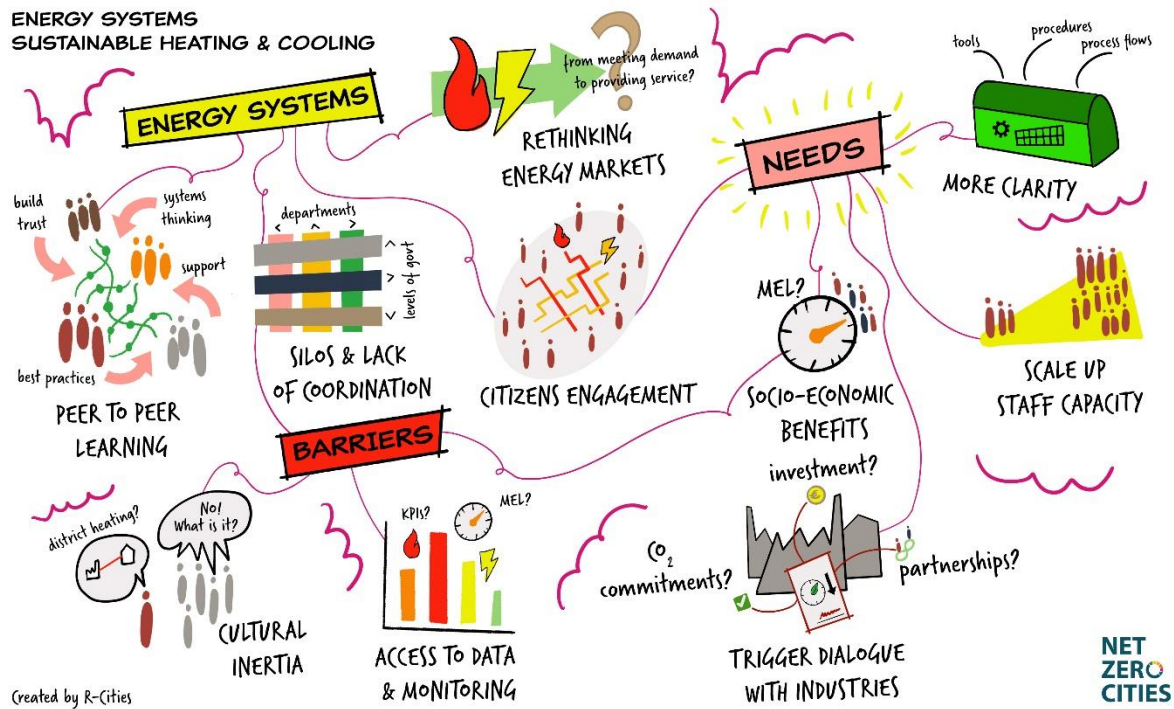 ENERGY SYSTEMS
SUSTAINABLE HEATING & COOLING
ENERGY SYSTEMS
from meeting demand
to providing service?
RETHINKING
ENERGY MARKETS
NEEDS
tools
procedures
process flows
MORE CLARITY
build
trust
systems
thinking
support
best practices
PEER TO PEER
LEARNING
departments
levels of govt
SILOS & LACK
OF COORDINATION
CITIZENS ENGAGEMENT
MEL?
SOCIO-ECONOMIC
BENEFITS
SCALE UP
STAFF CAPACITY
BARRIERS
district heating?
No!
What is it?
CULTURAL
INERTIA
KPIs?
MEL?
ACCESS TO DATA
& MONITORING
investment?
€
CO₂
commitments?
partnerships?
TRIGGER DIALOGUE
WITH INDUSTRIES
Created by R-Cities
NET
ZERO
CITIES